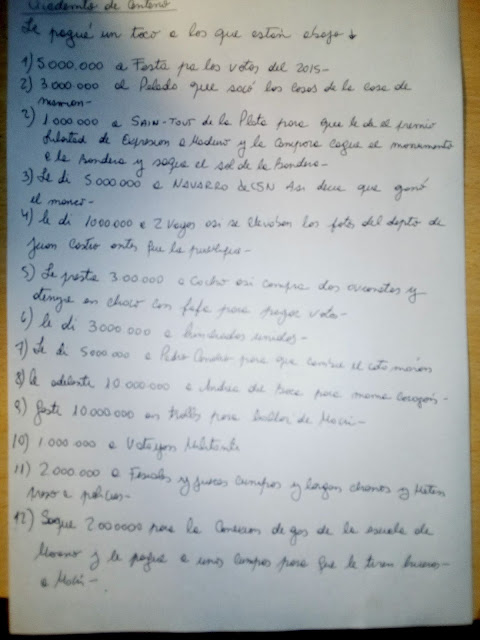 Cuaderno de Centeno
Le pagué un toco a los que están abajo ↓
1) 5.000.000 a Festa pa los votos del 2015-
2) 3.000.000 al Pelado que sacó las cosas de la casa de
2) 1.000.000 a SAIN-TOUT de la Plata para que le de el premio
Libertad de Expresion a Maduro y la Campora cague el monumento
a la bandera y saque el sol de la Bandera-
3) Le di 5.000.000 a NAVARRO de C5N Asi dice que ganó
el
4) le di 1000.000 a 2 Vagos asi se llevaban las fotos del depto de
Juan Castro antes
5) Le presta 3.00.000 a Cacho asi compra dos avionetas y
en chaco con fafa para pagar votos-
6) le di 3000.000 a unidos-
7) Le di 5000.000 a Pedro para que cambie el
8) le adelante 10.000.000 a Andrea del Boca para
9) Gaste 10.000.000 en trolls para hablar de Macri-
10) 1.000.000 a Militante
11) 2.000.000 a Fiscales y jueces y largan chorros y Meten
preso a policias-
12) Saque 2000000 para la Conexion de gas de la escuela de
Moreno y le pague a unos para que le tiren
a Macri-